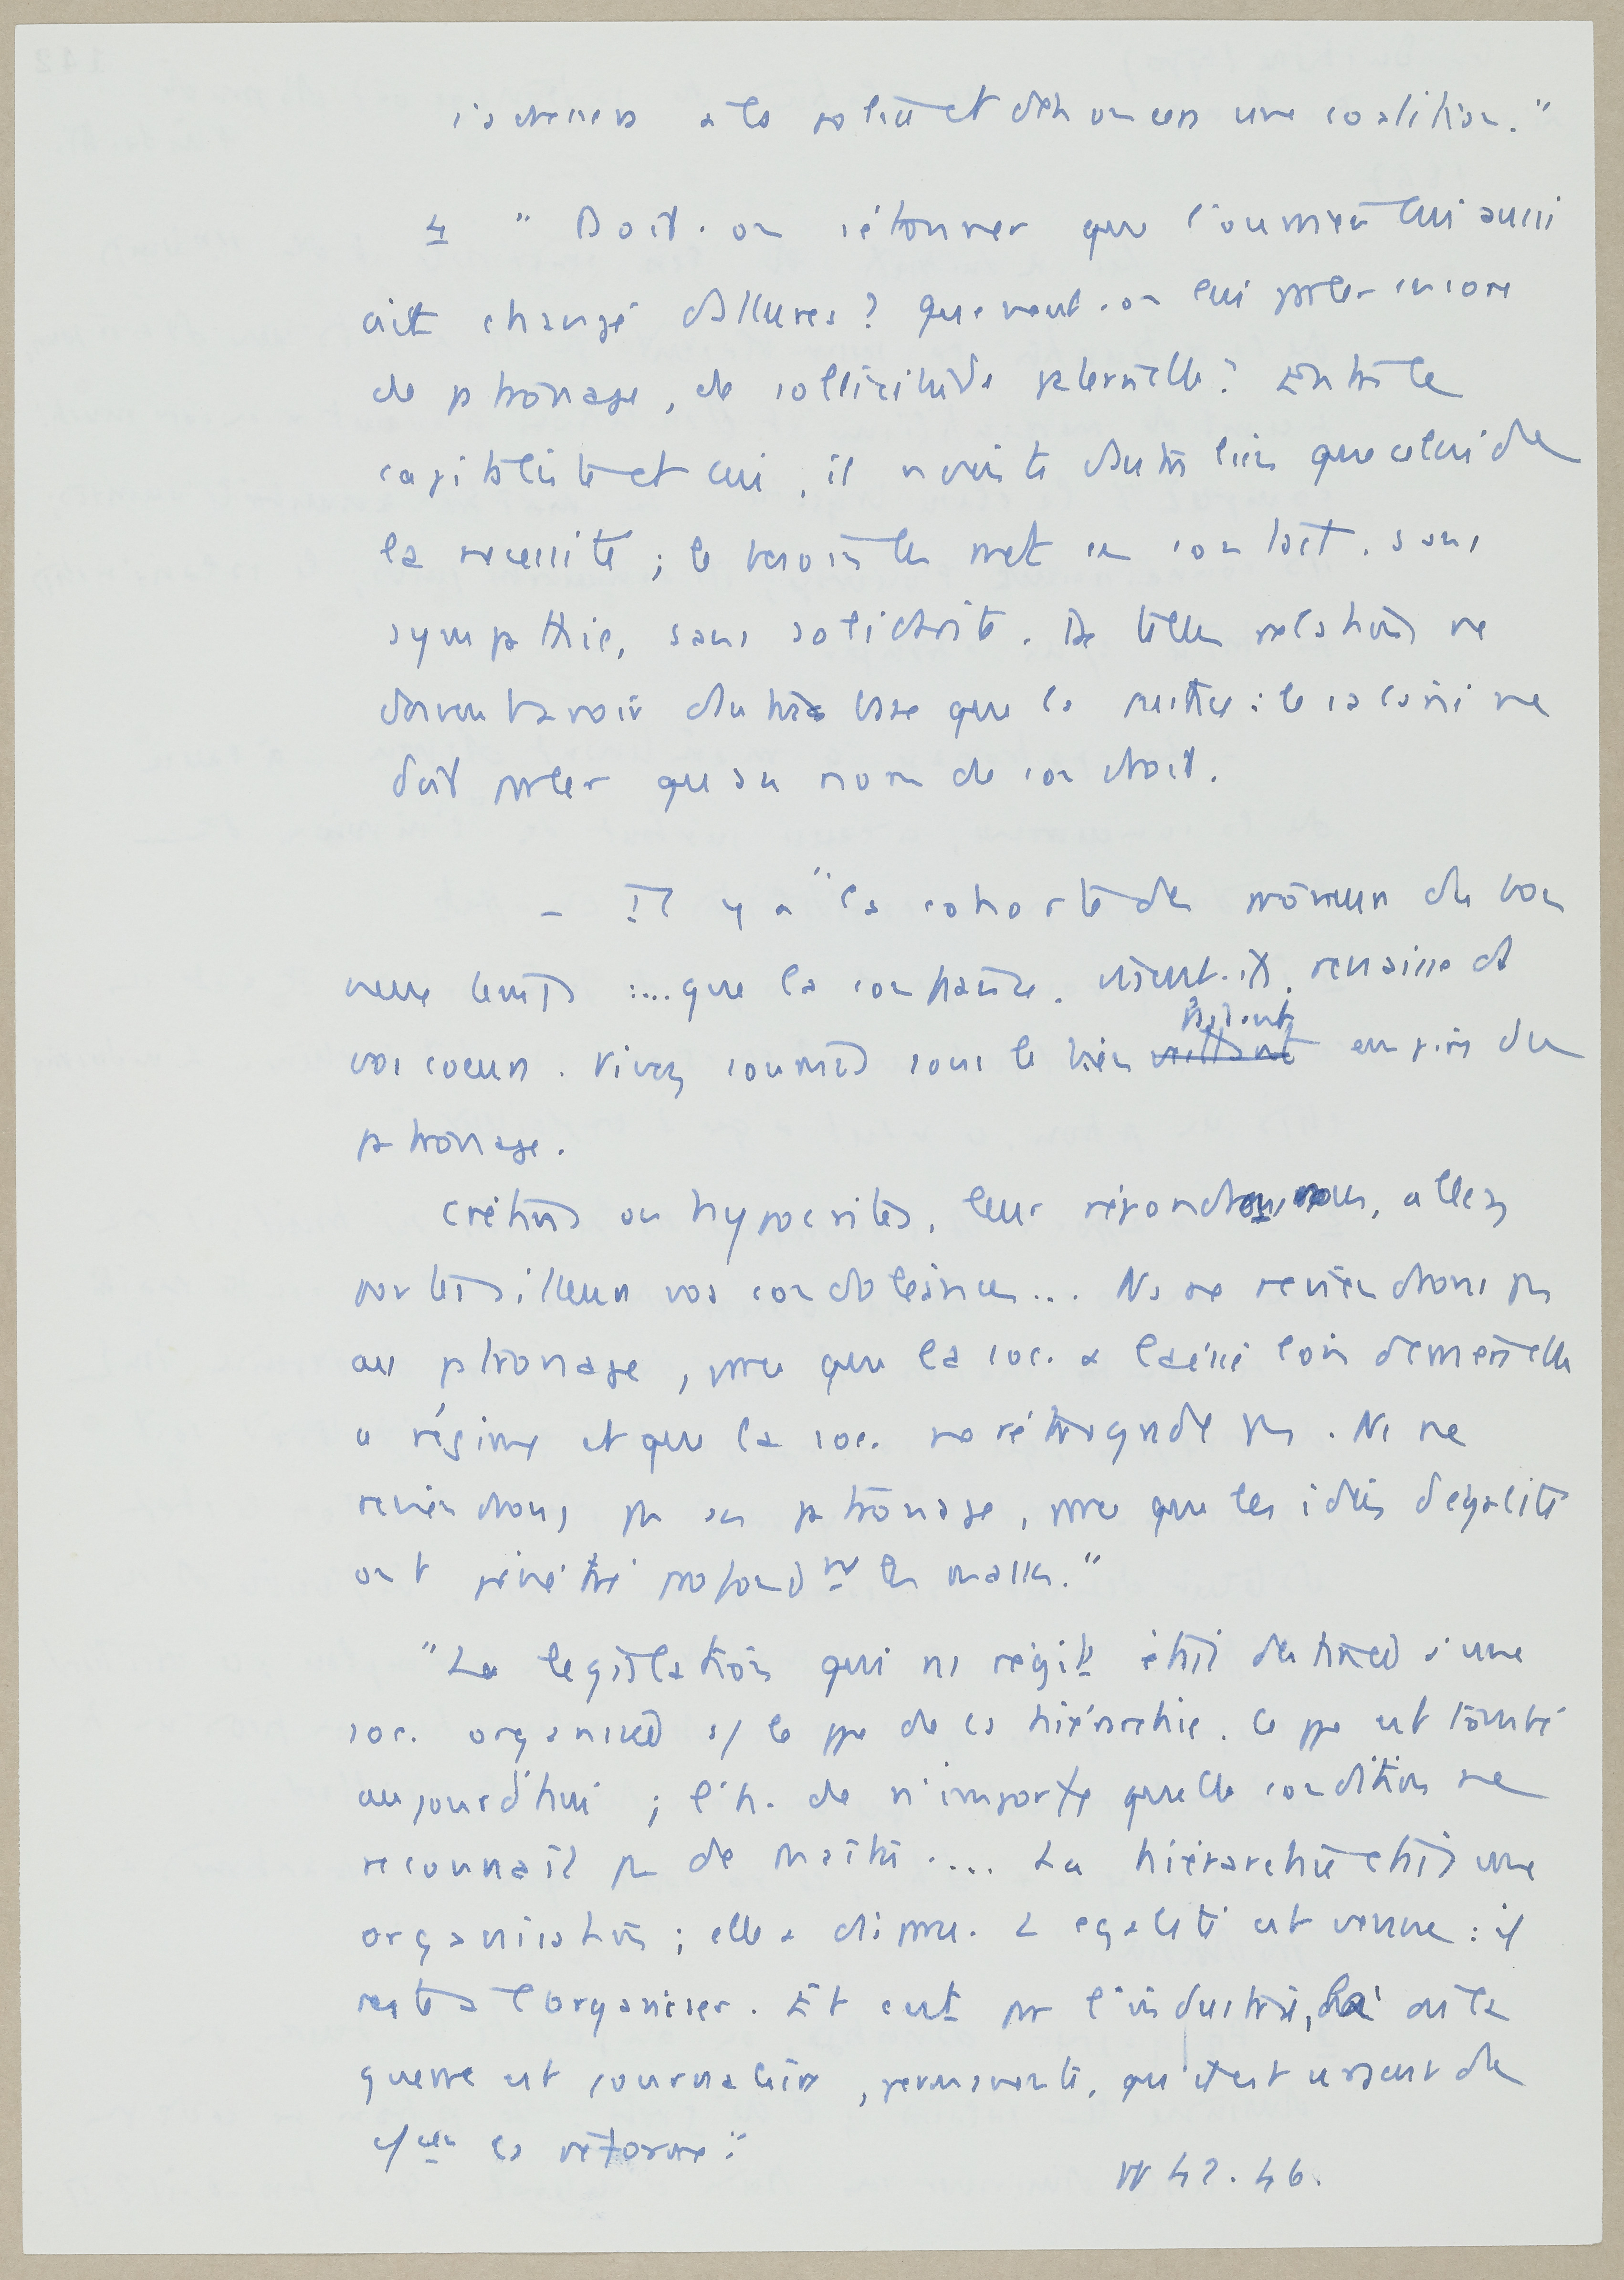 s'adresser à la police et dénoncer une coalition."
4 " Doit-on s'étonner que l'ouvrier lui aussi
ait changé d'allures ? Que veut-on lui parler encore
de patronage, de sollicitude paternelle ? Entre le
capitaliste et lui, il n'existe d'autre lien que celui de
la nécessité ; le besoin les met en contact, sans
sympathie, sans solidarité. De telles relations ne
doivent avoir d'autre base que la justice : le salarié ne
doit parler qu'au nom de son droit.
- Il y a "la cohorte des prôneurs du bon
vieux temps :... que la confiance, disent-ils, renaisse ds
vos coeurs. Vivez soumis sous le bienfaisant empire du
patronage.
Crétins ou hypocrites, leur répondrons nous, allez
porter ailleurs vos condoléances... Ns ne reviendrons pas
au patronage, parce que la soc. a laissé loin derrière elle
ce régime et que la soc. ne rétrograde pas. Ns ne
reviendrons pas au patronage, parce que les idées d'égalité
ont pénétré profondmt les masses."
"La législation qui ns régit était destinée à une
soc. organisée s/ le ppe de la hiérarchie. Ce ppe est tombé
aujourd'hui ; l'h. de n'importe quelle condition ne
reconnaît pas de maître .... La hiérarchie était une
organisation ; elle a disparu. L'égalité est venue : il
reste à l'organiser. Et c'est pr l'industrie, là où la
guerre est journalière, permanente, qu'il est urgent de
la réforme."
pp 42.46.